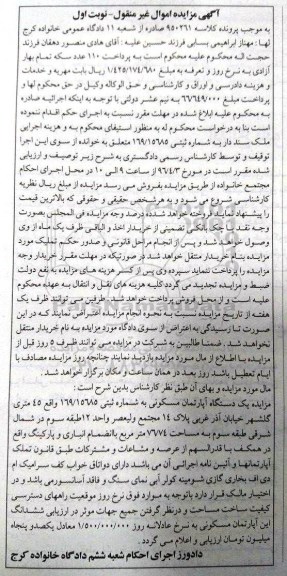 آگهی مزایده اموال غیر منقول-نوبت اول
به موجب پرونده کلاسه ۹۵۰۲۶۱ صادره از شعبه ۱۱ دادگاه عمومی خانواده کرج
لها: مهناز ابراهیمی بسابی فرزند حسین علیه: آقای هادی منصور دهقان فرزند
حجت اله محکوم علیه محکوم است به پرداخت ۱۱۰ عدد سکه تمام بهار
آزادی به نرخ روز و تعرفه به مبلغ ۱/۴۲۵/۱۷۴/۶۸۰ ریال بابت مهریه و خدمات
و هزینه دادرسی و اوراق و کارشناسی و حق الوکاله وکیل در حق محکوم لها و
پرداخت مبلغ ۶۶/۶۴۹/۰۰۰ به نیم عشر دولتی با توجه به اینکه اجرائیه صادره
به محکوم علیه ابلاغ شده در مهلت مقرر نسبت به اجرای حکم اقدام ننموده
است بنا به درخواست محکوم له به منظور استیفای محکوم به و هزینه اجرایی
ملک سند دار به شماره ثبتی ۱۶۹/۱۵۶۸۵ متعلق به خوانده از سوی این اجرا
توقیف و توسط کارشناس رسمی دادگستری به شرح زیر توصیف و ارزیابی
شده مقرر است در مورخ ۹۶/۴/۳ از ساعت ۹ الی ۱۰ در محل اجرای احکام
مجتمع خانواده از طریق مزایده بفروش می رسد مزایده از مبلغ ریال نظریه
کارشناسی شروع می شود و به هر شخص حقیقی و حقوقی که بالاترین قیمت
را پیشنهاد نماید فروخته خواهد شد ده درصد وجه مزایده فی المجلس بصورت
وجه نقد یا چک بانکی تضمینی از خریدار اخذ و الباقی ظرف یک ماه از وی
وصول خواهد شد و پس از انجام مراحل قانونی و صدور حکم تملیک مورد
مزایده بنام خریدار منتقل خواهد شد در صورتیکه در مهلت مقرر خریدار وجه
مزایده را پرداخت ننماید سپرده وی پس از کسر هزینه های مزایده به نفع دولت
ضبط و مزایده تجدید می گردد کلیه هزینه های نقل و انتقال به عهده محکوم
علیه است و از محل فروش پرداخت خواهد شد. طرفین می توانند ظرف یک
هفته از تاریخ مزایده نسبت به نحوه انجام مزایده اعتراض نمایند که در این
صورت تا رسیدگی به اعتراض از سوی دادگاه مورد مزایده به نام خریدار منتقل
نخواهد شد. ضمنا طالبین به شرکت در مزایده می توانند ظرف ۵ روز قبل از
مزایده با اطلاع از مال مورد مزایده بازدید نمایند چنانچه روز مزایده مصادف با
ایام تعطیل باشد روز بعد در همان ساعت و مکان برگزار خواهد شد.
مال مورد مزایده و بهای آن طبق نظر کارشناس بدین شرح است:
مزایده یک دستگاه آپارتمان مسکونی به شماره ثبتی ۱۶۹/۱۵۶۸۵ واقع ۴۵ متری
گلشهر خیابان آذر غربی پلاک ۱۴ مجتمع ولیعصر واحد ۱۲ طبقه سوم در شمال
شرقی طبقه سوم به مساحت ۷۶/۷۴ متر مربع بانضمام انباری و پارکینگ واقع
در همکف با قدرالسهم از عرصه و مشاعات و مشترکات طبق قانون تملک
آپارتمانها و آئین نامه اجرائی آن می باشد دارای دو اتاق خواب کف سرامیک ام
دی اف بخاری گازی شومینه کولر آبی نمای سنگ و فاقد آسانسور می باشد و در
اختیار مالک قرار دارد باتوجه به موارد فوق نرخ روز موقعیت راههای دسترسی
کیفیت ساخت مساحت و درنظر گرفتن جمیع جهات موثر در ارزیابی ششدانگ
این آپارتمان مسکونی به نرخ عادلانه روز ۱/۵۰۰/۰۰۰/۰۰۰ معادل یکصد و پنجاه
میلیون تومان ارزیابی و اعلام می گردد.
دادورز اجرای احکام شعبه ششم دادگاه خانواده کرج